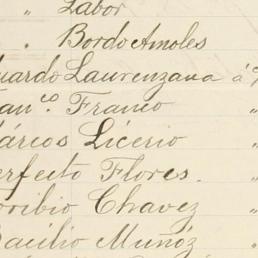 " Labor
" Bordo Amoles
uardo Laurenzana á
an.co Franco "
árcos Licerio "
erfeito Flores. "
oribio Chavez "
Basilio Muñóz "